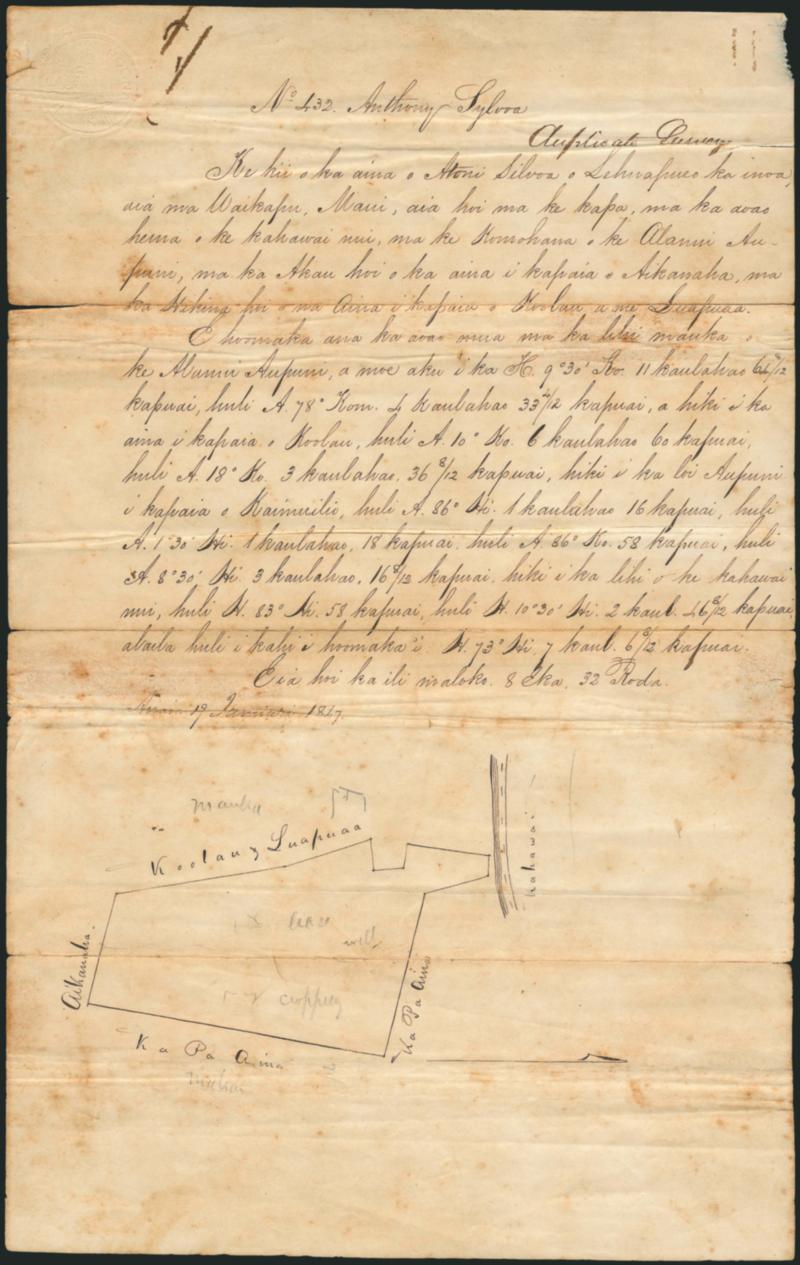 No 432. Anthony Sylvoa
Duplicate Survey
Ke kii o ka aina o Atoni Silvoa o Lehuapueo ka inoa,
aia ma Waikapu, Maui, aia hoi ma ke kapa, ma ka aoao
hema o ke kahawai nui, ma ke Komohana o ke Alanui Au-
puni, ma ka Akau hoi o ka aina i kapaia o Aikanaha, ma
ka Hikina hoi o na Aina i kapaia o Koolau, a me Luapuaa.
E hoomaka ana ka aoao mua ma ka lihi mauka o
ke Alanui Aupuni, a moe aku i ka H. 9° 30' Ko. 11 kaulahao /12
kapuai, huli A. 78° Kom. 4 Kaulahao 33 4/12 kapuai, a hiki i ka
aina i kapaia o Koolau, huli A. 10° Ko. 6 kaulahao 60 kapuai,
huli A. 18° Ko. 3 kaulahao. 36 8/12 kapuai, hiki i ka loi Aupuni
i kapaia o Kaimuilio, huli A. 86° Hi. 1 kaulahao 16 kapuai, huli
A. 1° 30' Hi. 1 kaulahao, 18 kapuai. huli A. 86° Ko. 58 kapuai, huli
A. 8° 30' Hi. 3 kaulahao, 16 8/12 kapuai. hiki i ka lihi o ke kahawai
nui, huli H. 83° Hi. 58 kapuai, huli H. 10° 30' Hi. 2 kaul. 46 8/12 kapuai,
alaila huli i kahi i hoomaka'i H. 73° Hi. 7 kaul. 6 8/12 kapuai.
Eia hoi ka ili maloko. 8 Eka. 32 Roda.
19 Ianuari 1847
mauka
Koolau & Luapuaa
kahawai
Aikanaha.
lease
well
cropping
Ka Pa Aina
Ka Pa Aina
makai